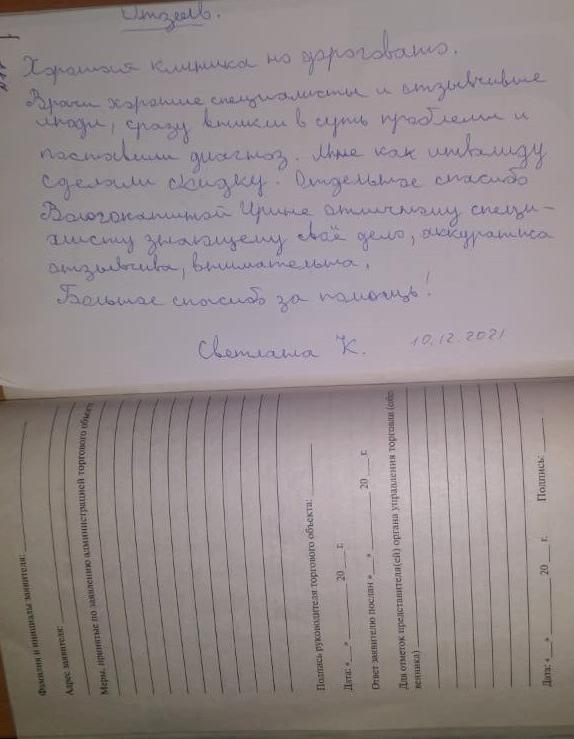 Отзыв.
Хорошая клиника но дороговато.
Врачи хорошие специалисты и отзывчивые
люди, сразу вникли в суть проблемы и
поставили диагноз. Мне как инвалиду
сделали скидку. Отдельное спасибо
Ирине отличному специ-
алисту знающему своё дело, аккуратна
отзывчива, внимательна.
Большое спосибо за помощь!
Светлана К. 10.12.2021
Фамилия и инициалы заявителя:
Адрес заявителя:
Меры, принятые по заявлению администрацией торгового объекта
Подпись руководителя торгового объекта:
Дата: «___» ______ 20 ___ г.
Ответ заявителю послан «___» ______ 20 ___ г.
Для отметок представителя(ей) органа управления торговли
Дата: «___» ______ 20 ___ г. Подпись: